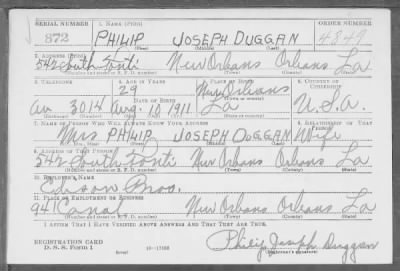 SERIAL NUMBER 1. NAME (Print) ORDER NUMBER
872 PHILIP JOSEPH DUGGAN 4849
(First) (Middle) (Last)
2. ADDRESS (Print)
542 South New Orleans Orleans La
(Number and street or R. F. D. number) (Town) (County) (State)
3. TELEPHONE 4. AGE IN YEARS 5. PLACE OF BIRTH 6. COUNTRY OF CITIZENSHIP
29 New Orleans
DATE OF BIRTH
3014 Aug. 1911 La U.S.A.
7. NAME OF PERSON WHO WILL ALWAYS KNOW YOUR ADDRESS 8. RELATIONSHIP OF THAT PERSON
Mrs PHILIP JOSEPH DUGGAN Wife
(Mr., Mrs., Miss) (First) (Middle) (Last)
9. ADDRESS OF THAT PERSON
542 South New Orleans Orleans La
(Number and street or R. F. D. number) (Town) (County) (State)
10. EMPLOYER'S NAME
Edison Bros.
11. PLACE OF EMPLOYMENT OR BUSINESS
941 Canal New Orleans Orleans La
(Number and street or R. F. D. number) (Town) (County) (State)
I AFFIRM THAT I HAVE VERIFIED ABOVE ANSWERS AND THAT THEY ARE TRUE.
REGISTRATION CARD
D. S. S. Form 1 (over) 16—17105
Philip Joseph Duggan
(Registrant's signature)